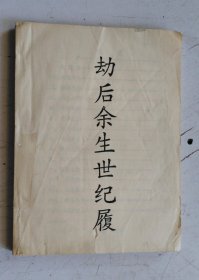 劫后余生世纪履